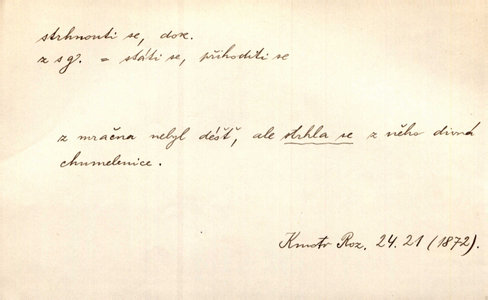 strhnouti se, dok.
z sg. = státi se, přihoditi se
z mračna nebyl déšť, ale strhla se z něho divná
chumelenice.
Kmotr Roz. 24.21 (1872).